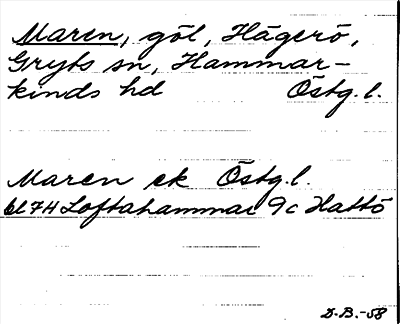 Maren, göl, Hägerö,
Gryts sn, Hammar-
kinds hd Östg. l.
Maren ek Östg. l.
bl 7H Loftahammar 9c Hattö
D.B.-58